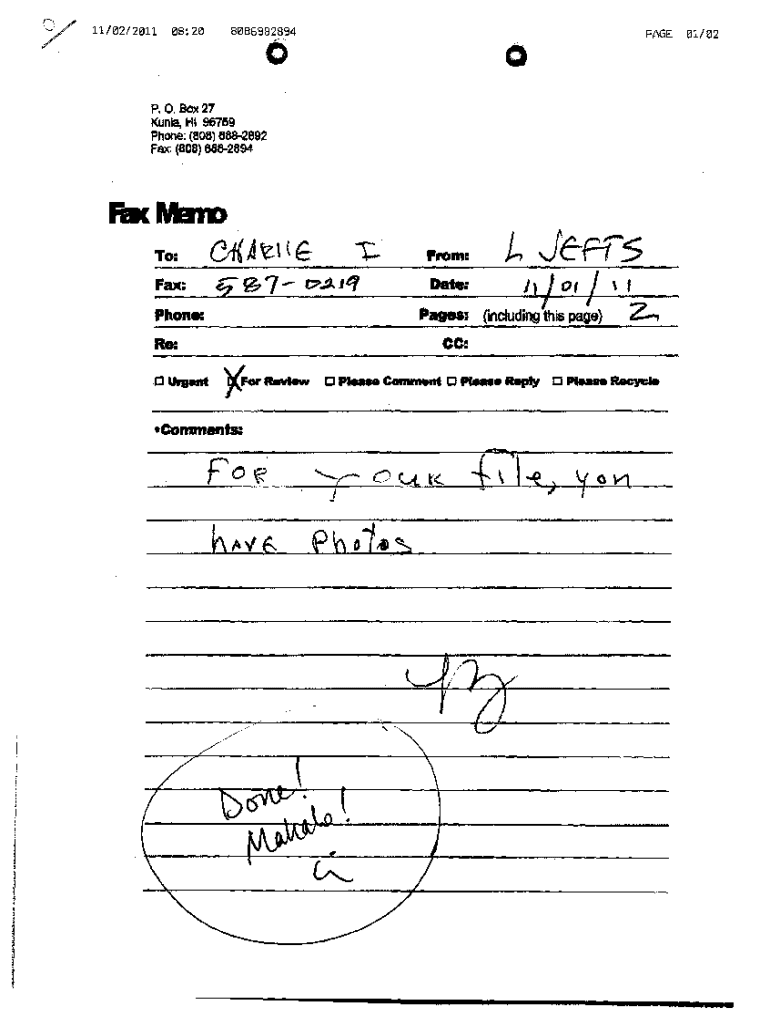 11/02/2011 08:20 8086982894 PAGE 01/02
P. O. Box 27
Kunia, HI 96759
Phone: (808) 688-2892
Fax: (808) 688-2894
Fax Memo
To: CHARLIE I From: L JEFTS
Fax: 587-0219 Date: 11/01/11
Phone: Pages: (including this page) 2
Re: CC:
☐ Urgent ☒ For Review ☐ Please Comment ☐ Please Reply ☐ Please Recycle
•Comments:
FOR YOUR file, you
HAVE Photos
Done!
Mahalo!
Ci